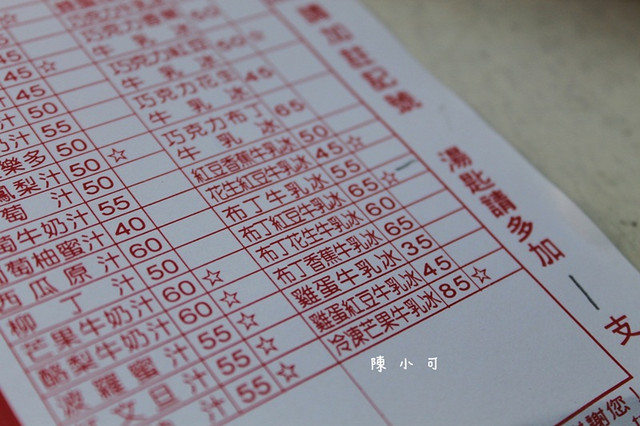 45
45☆
45
汁 50
奶汁 55
樂多 50☆
鳳梨汁 50
葡萄汁 55
牛奶汁 40
葡萄柚蜜汁 60
西瓜原汁 50☆
柳丁汁 60☆
芒果牛奶汁 60☆
酪梨牛奶汁 55☆
波羅蜜汁 55☆
文旦汁 55☆
牛乳冰
巧克力紅豆
牛乳冰 50☆
巧克力花生
牛乳冰 45
巧克力布丁
牛乳冰 65
紅豆香蕉牛乳冰 50
花生紅豆牛乳冰 45☆
布丁牛乳冰 55
布丁紅豆牛乳冰 65☆
布丁花生牛乳冰 60
布丁香蕉牛乳冰 65
雞蛋牛乳冰 35
雞蛋紅豆牛乳冰 45
冷凍芒果牛乳冰 85☆
請加註記號
湯匙請多加 一 支
謝您
陳小可